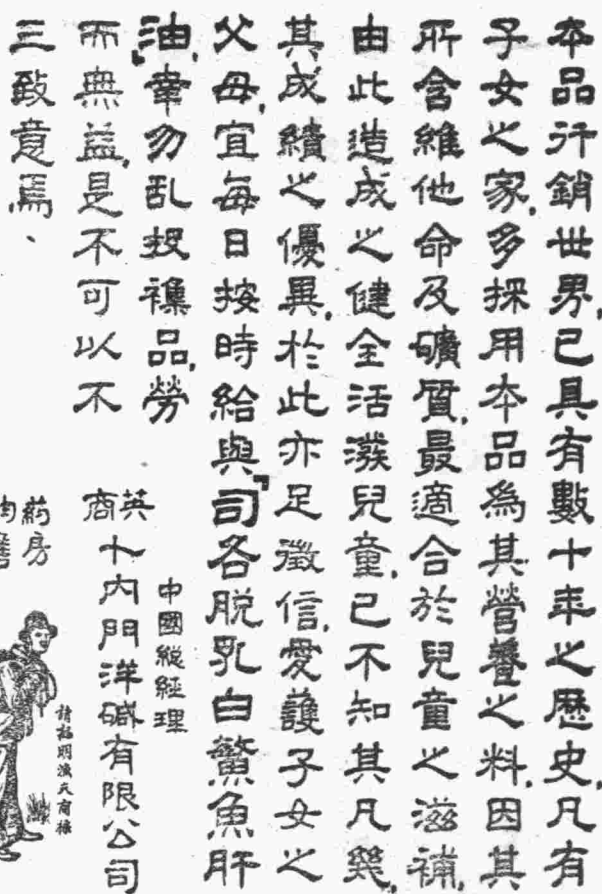 本品行銷世界、已具有數十年之歷史、凡有
子女之家、多採用本品為其營養之料、因其
所含維他命及礦質、最適合於兒童之滋補、
由此造成之健全活潑兒童、已不知其凡幾、
其成績之優異、於此亦足徵信、愛護子女之
父母、宜每日按時給與『司各脫乳白鰵魚肝
油』、幸勿乱投襍品、勞
而無益、是不可以不
三致意焉、
中國總經理
英商卜內門洋碱有限公司
药房
均售
請認明漁夫商標